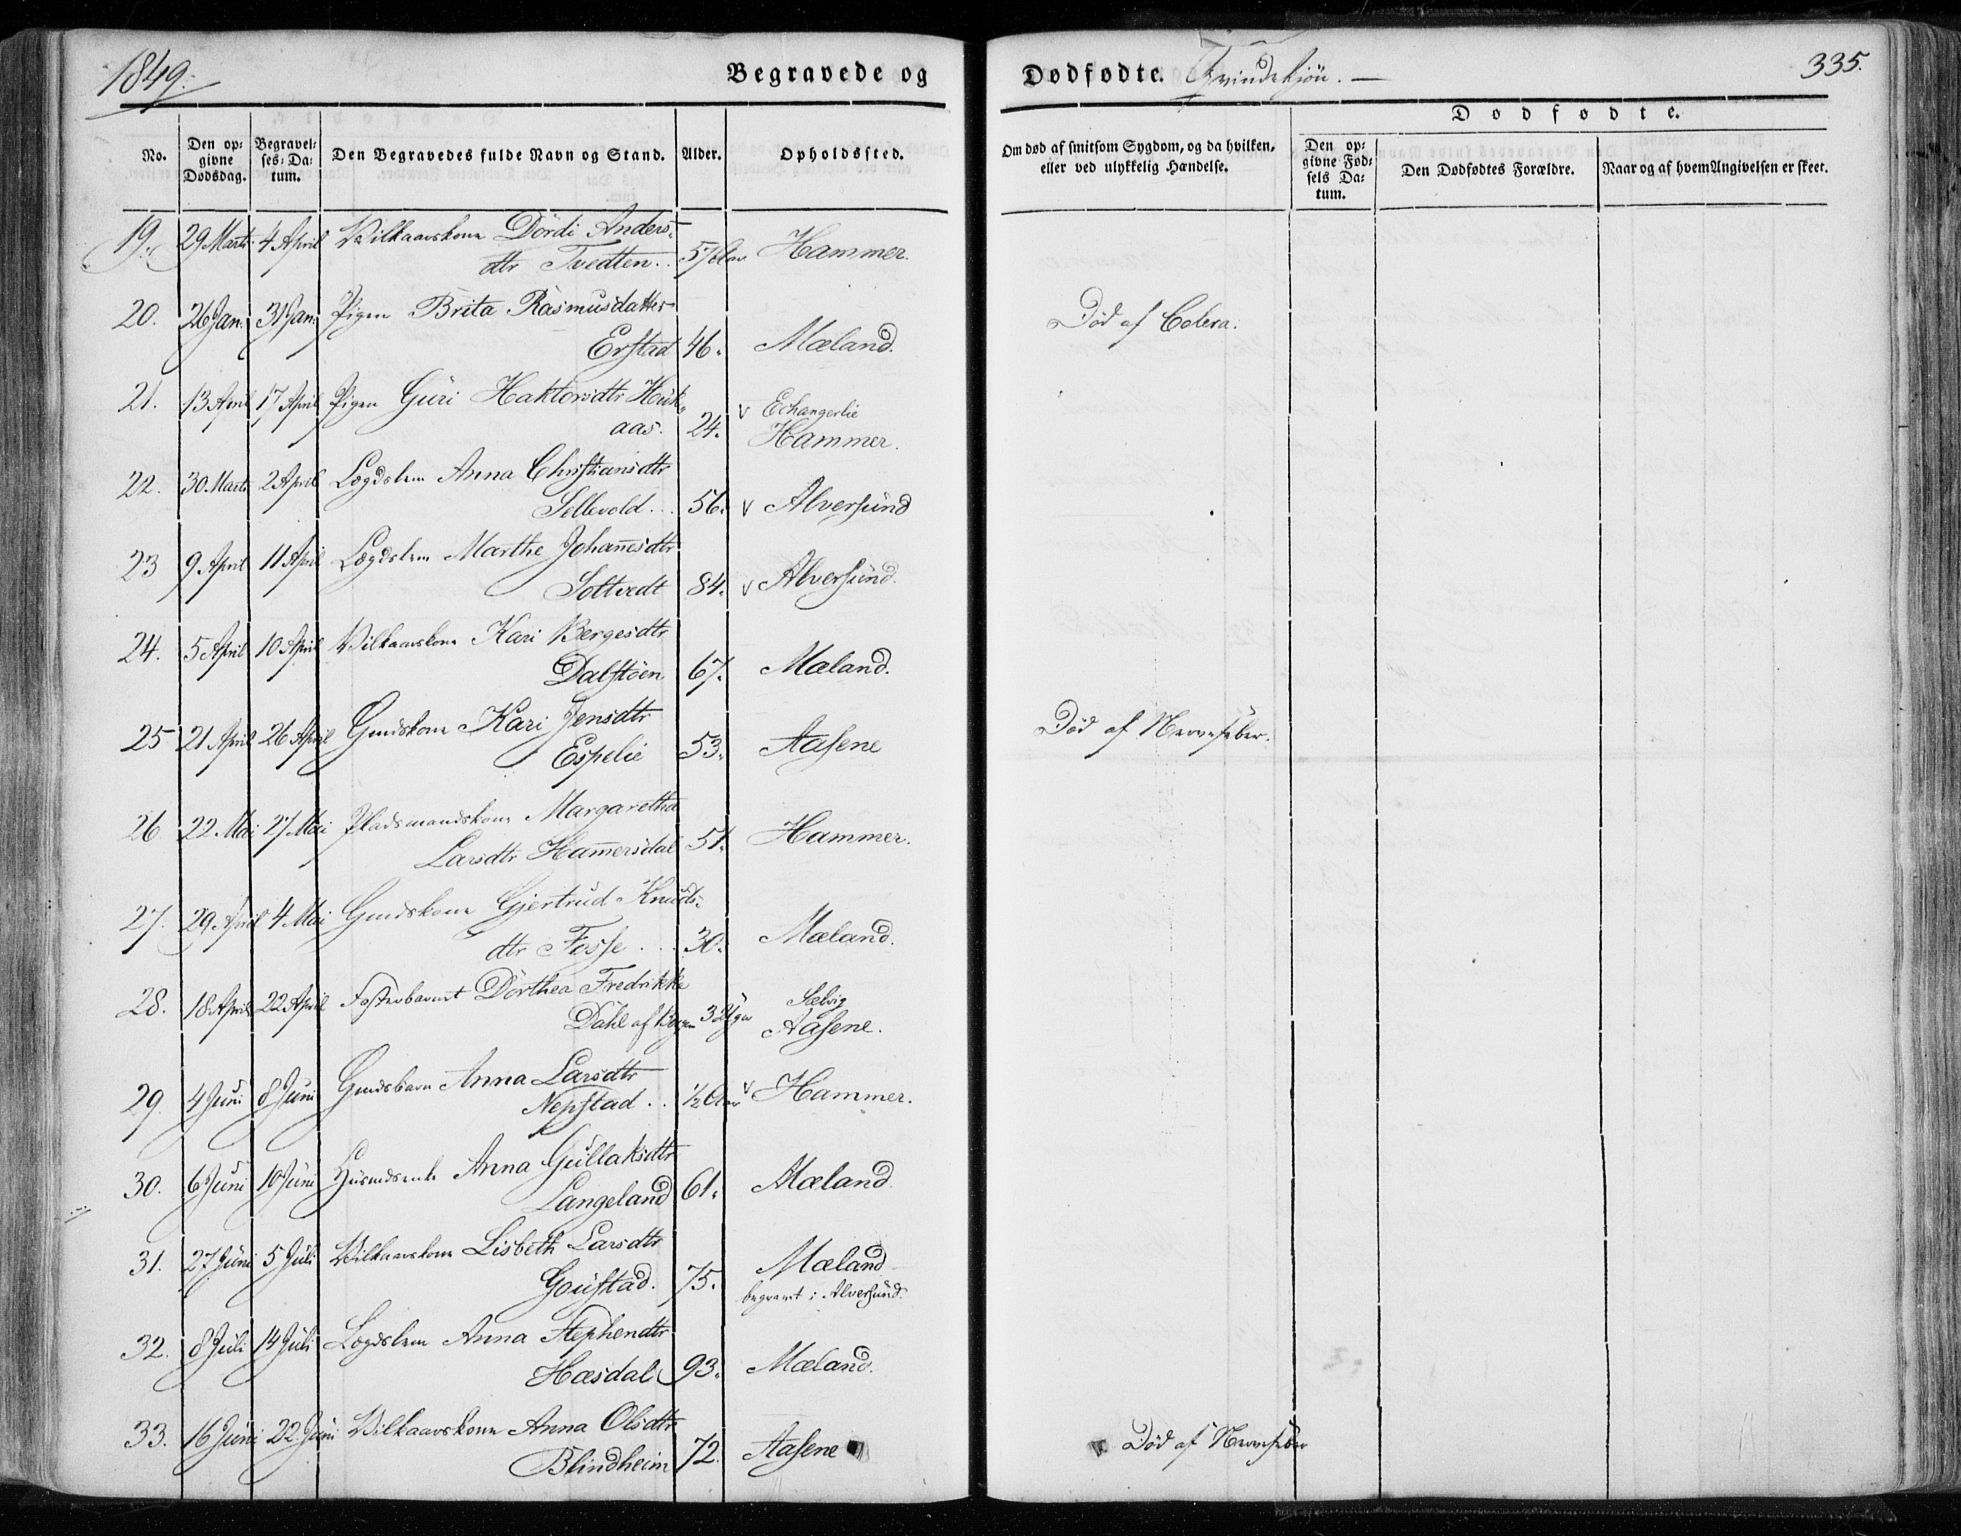 1849.
Begravede og
Dødfødte. Qvindekjön.
335.
No.
Den op-
givne
Dødsdag.
Begravel-
ses-Da-
tum.
Den Begravedes fulde Navn og Stand.
Alder.
Opholdssted.
Om død af smitsom Sygdom, og da hvilken,
eller ved ulykkelig Hændelse.
Dødfødte.
Den op-
givne Fød-
sels Da-
tum.
Den Dødfødtes Forældre.
Naar og af hvem Angivelsen er skeet.
19. 29 Marts 4 April Vilkaarskone Dördi Anders-
dtr Tvedten. 57 Aar Hammer.
20. 26 Jan. 31 Jan. Pigen Brita Rasmusdatter Død af Colera.
Erstad 46. Mæland.
21. 13 April 17 April Pigen Guri Haktorsdtr
aas. 24. v Echangerlie
Hammer.
22. 30 Marts 2 April Lægdslem Anna Christiansdtr
Sellevold. 56. v Alversund
23 9 April 11 April Lægdslem Marthe Johannesdtr
Soltvedt 84. v Alversund.
24. 5 April 10 April Vilkaarskone Kari Børgesdtr
Dalstöen 67. Mæland.
25 21 April 26 April Gmdskone Kari Jensdtr Død af Nervefeber.
Espelie 53. Aasene
26 22 Mai 27 Mai Pladsmandskone Margaretha
Larsdtr Hamersdal 51. Hammer.
27. 29 April 4 Mai Gmdskone Gjertrud Knuds-
dtr Fosse 30. Mæland.
28. 18 April 22 April Fosterbarnet Dorthea Fredrikke
Dahl af Bergen 3 Uger Sælvig
Aasene.
29. 4 Juni 8 Juni Gmdsbarn Anna Larsdtr
Nepstad. ½ Aar v Hammer.
30. 6 Juni 10 Juni Husmdsenke Anna Gullaksdtr
Langeland 61. Mæland
31. 27 Juni 5 Juli Vilkaarskone Lisbeth Larsdtr
Goustad. 75. Mæland
begravet i Alversund.
32. 8 Juli 14 Juli Lægdslem Anna Stephendtr
Hæsdal 93. Mæland.
33. 16 Juni 22. Juni Vilkaarskone Anna Olsdtr
Blindheim 72. Aasene Død af Nervefeber